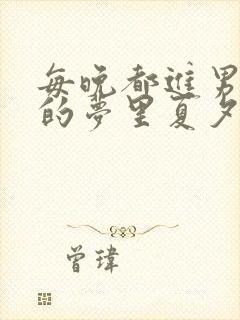 每晚都進男
的夢里夏夕
曾瑋